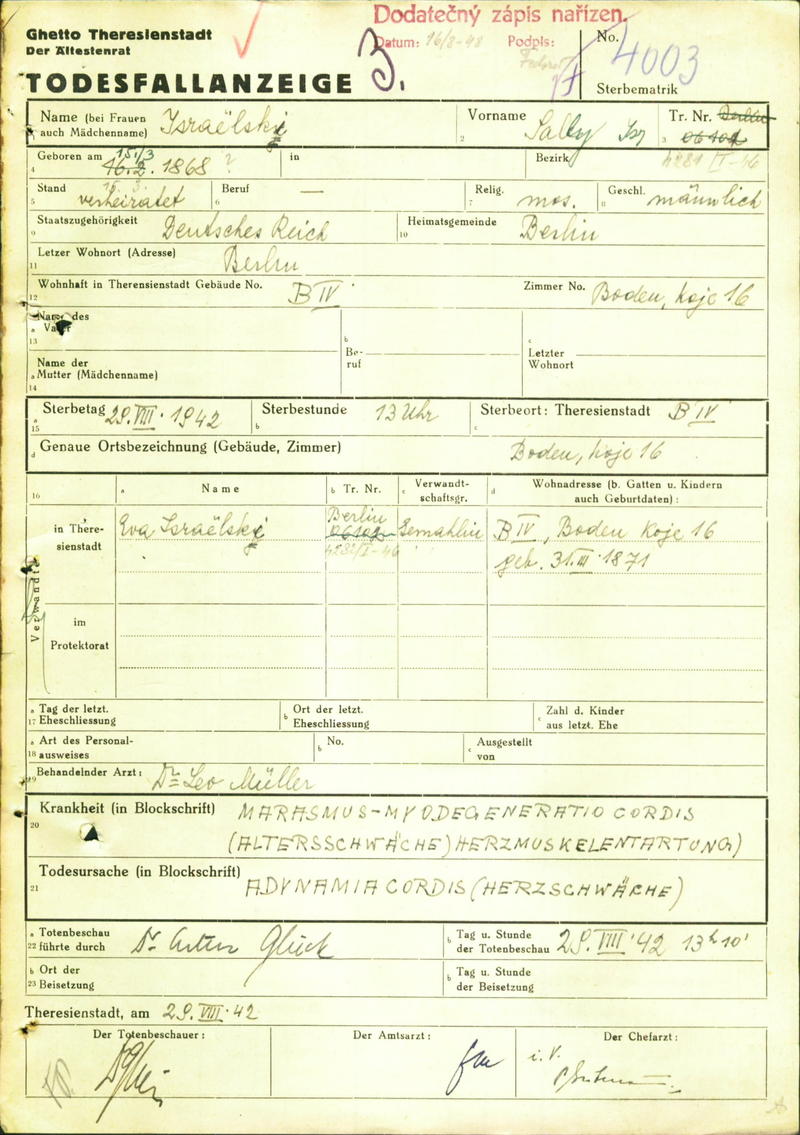 Dodatečný zápis nařízen.
Ghetto Theresienstadt
Der Ältestenrat
Datum: 16/8-48 Podpis:
TODESFALLANZEIGE
No. 4003
Sterbematrik
Name (bei Frauen auch Mädchenname) Israëlski
Vorname Sally Isr
Tr. Nr. Berlin
4 Geboren am 15./3 16.2. 1868 ? in
Bezirk 4281/I-46
5 Stand verheiratet
6 Beruf —
7 Relig. mos.
8 Geschl. männlich
9 Staatszugehörigkeit Deutsches Reich
10 Heimatsgemeinde Berlin
11 Letzer Wohnort (Adresse) Berlin
12 Wohnhaft in Therensienstadt Gebäude No. B IV
Zimmer No. Boden, Koje 16
13 a Name des Vater
b Beruf
c Letzter Wohnort
14 a Name der Mutter (Mädchenname)
15 a Sterbetag 29. VIII. 1942
b Sterbestunde 13 Uhr
c Sterbeort: Theresienstadt B IV
d Genaue Ortsbezeichnung (Gebäude, Zimmer) Boden, Koje 16
16 a Name
b Tr. Nr.
c Verwandtschaftsgr.
d Wohnadresse (b. Gatten u. Kindern auch Geburtdaten):
Verwandte
in Theresienstadt
Eva Israëlski
Berlin
4282/I-46
Gemahlin
B IV, Boden Koje 16
geb. 31. III. 1871
im Protektorat
17 a Tag der letzt. Eheschliessung
b Ort der letzt. Eheschliessung
c Zahl d. Kinder aus letzt. Ehe
18 a Art des Personalausweises
b No.
c Ausgestellt von
19 Behandelnder Arzt: Dr Leo Müller
20 Krankheit (in Blockschrift) MARASMUS-MYODEGENERATIO CORDIS
(ALTERSSCHWÄCHE) HERZMUSKELENTARTUNG)
21 Todesursache (in Blockschrift) ADYNAMIA CORDIS (HERZSCHWÄCHE)
22 a Totenbeschau führte durch Dr. Artur Glück
b Tag u. Stunde der Totenbeschau 29. VIII '42 13h 10'
23 b Ort der Beisetzung
b Tag u. Stunde der Beisetzung
Theresienstadt, am 29. VIII. 42
Der Totenbeschauer:
Der Amtsarzt:
Der Chefarzt:
i. V.